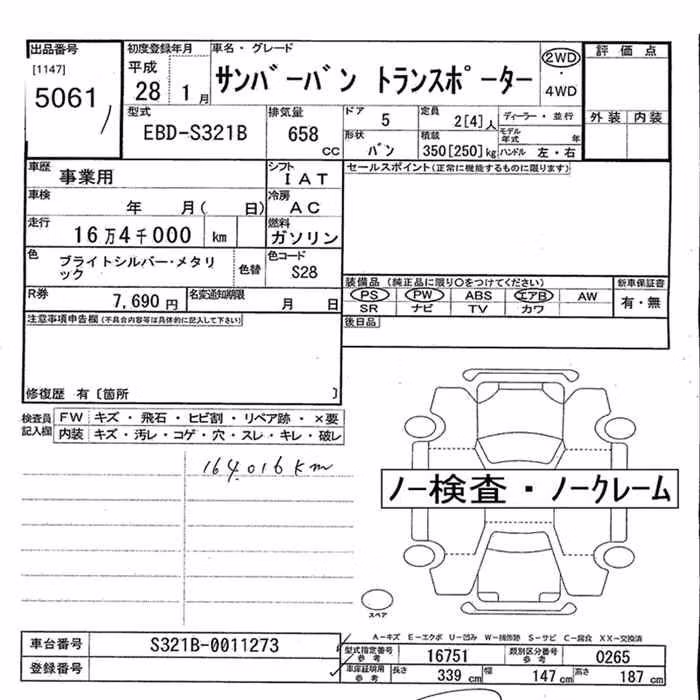 出品番号
[1147]
5061
初度登録年月
平成
28 1月
車名・グレード
サンバーバン トランスポーター
2WD
・
4WD
評価点
外装 内装
型式
EBD-S321B
排気量
658
CC
ドア
5
定員
2[4]人
ディーラー・並行
形状
バン
積載
350[250]kg
モデル年式 年
ハンドル 左・右
車歴
事業用
シフト
IAT
車検
年 月( 日)
冷房
AC
走行
16万4千000 km
燃料
ガソリン
色
ブライトシルバー・メタリ
ック
色替
色コード
S28
R券
7,690円
名変通知期限
月 日
セールスポイント(正常に機能するものに限ります)
装備品(純正品に限り〇をつけてください)
新車保証書
PS PW ABS エアB AW
SR ナビ TV カワ
有・無
後日品
注意事項申告欄(不具合内容等は具体的に記入して下さい)
修復歴 有〔箇所 〕
検査員
記入欄
FW キズ・飛石・ヒビ割・リペア跡・×要
内装 キズ・汚レ・コゲ・穴・スレ・キレ・破レ
164,016km
ノー検査・ノークレーム
スペア
A-キズ E-エクボ U-凹み W-補修跡 S-サビ C-腐食 XX-交換済
車台番号
S321B-0011273
登録番号
型式指定番号
参考
16751
類別区分番号
参考
0265
車庫証明用
参考
長さ 339 cm 幅 147 cm 高さ 187 cm